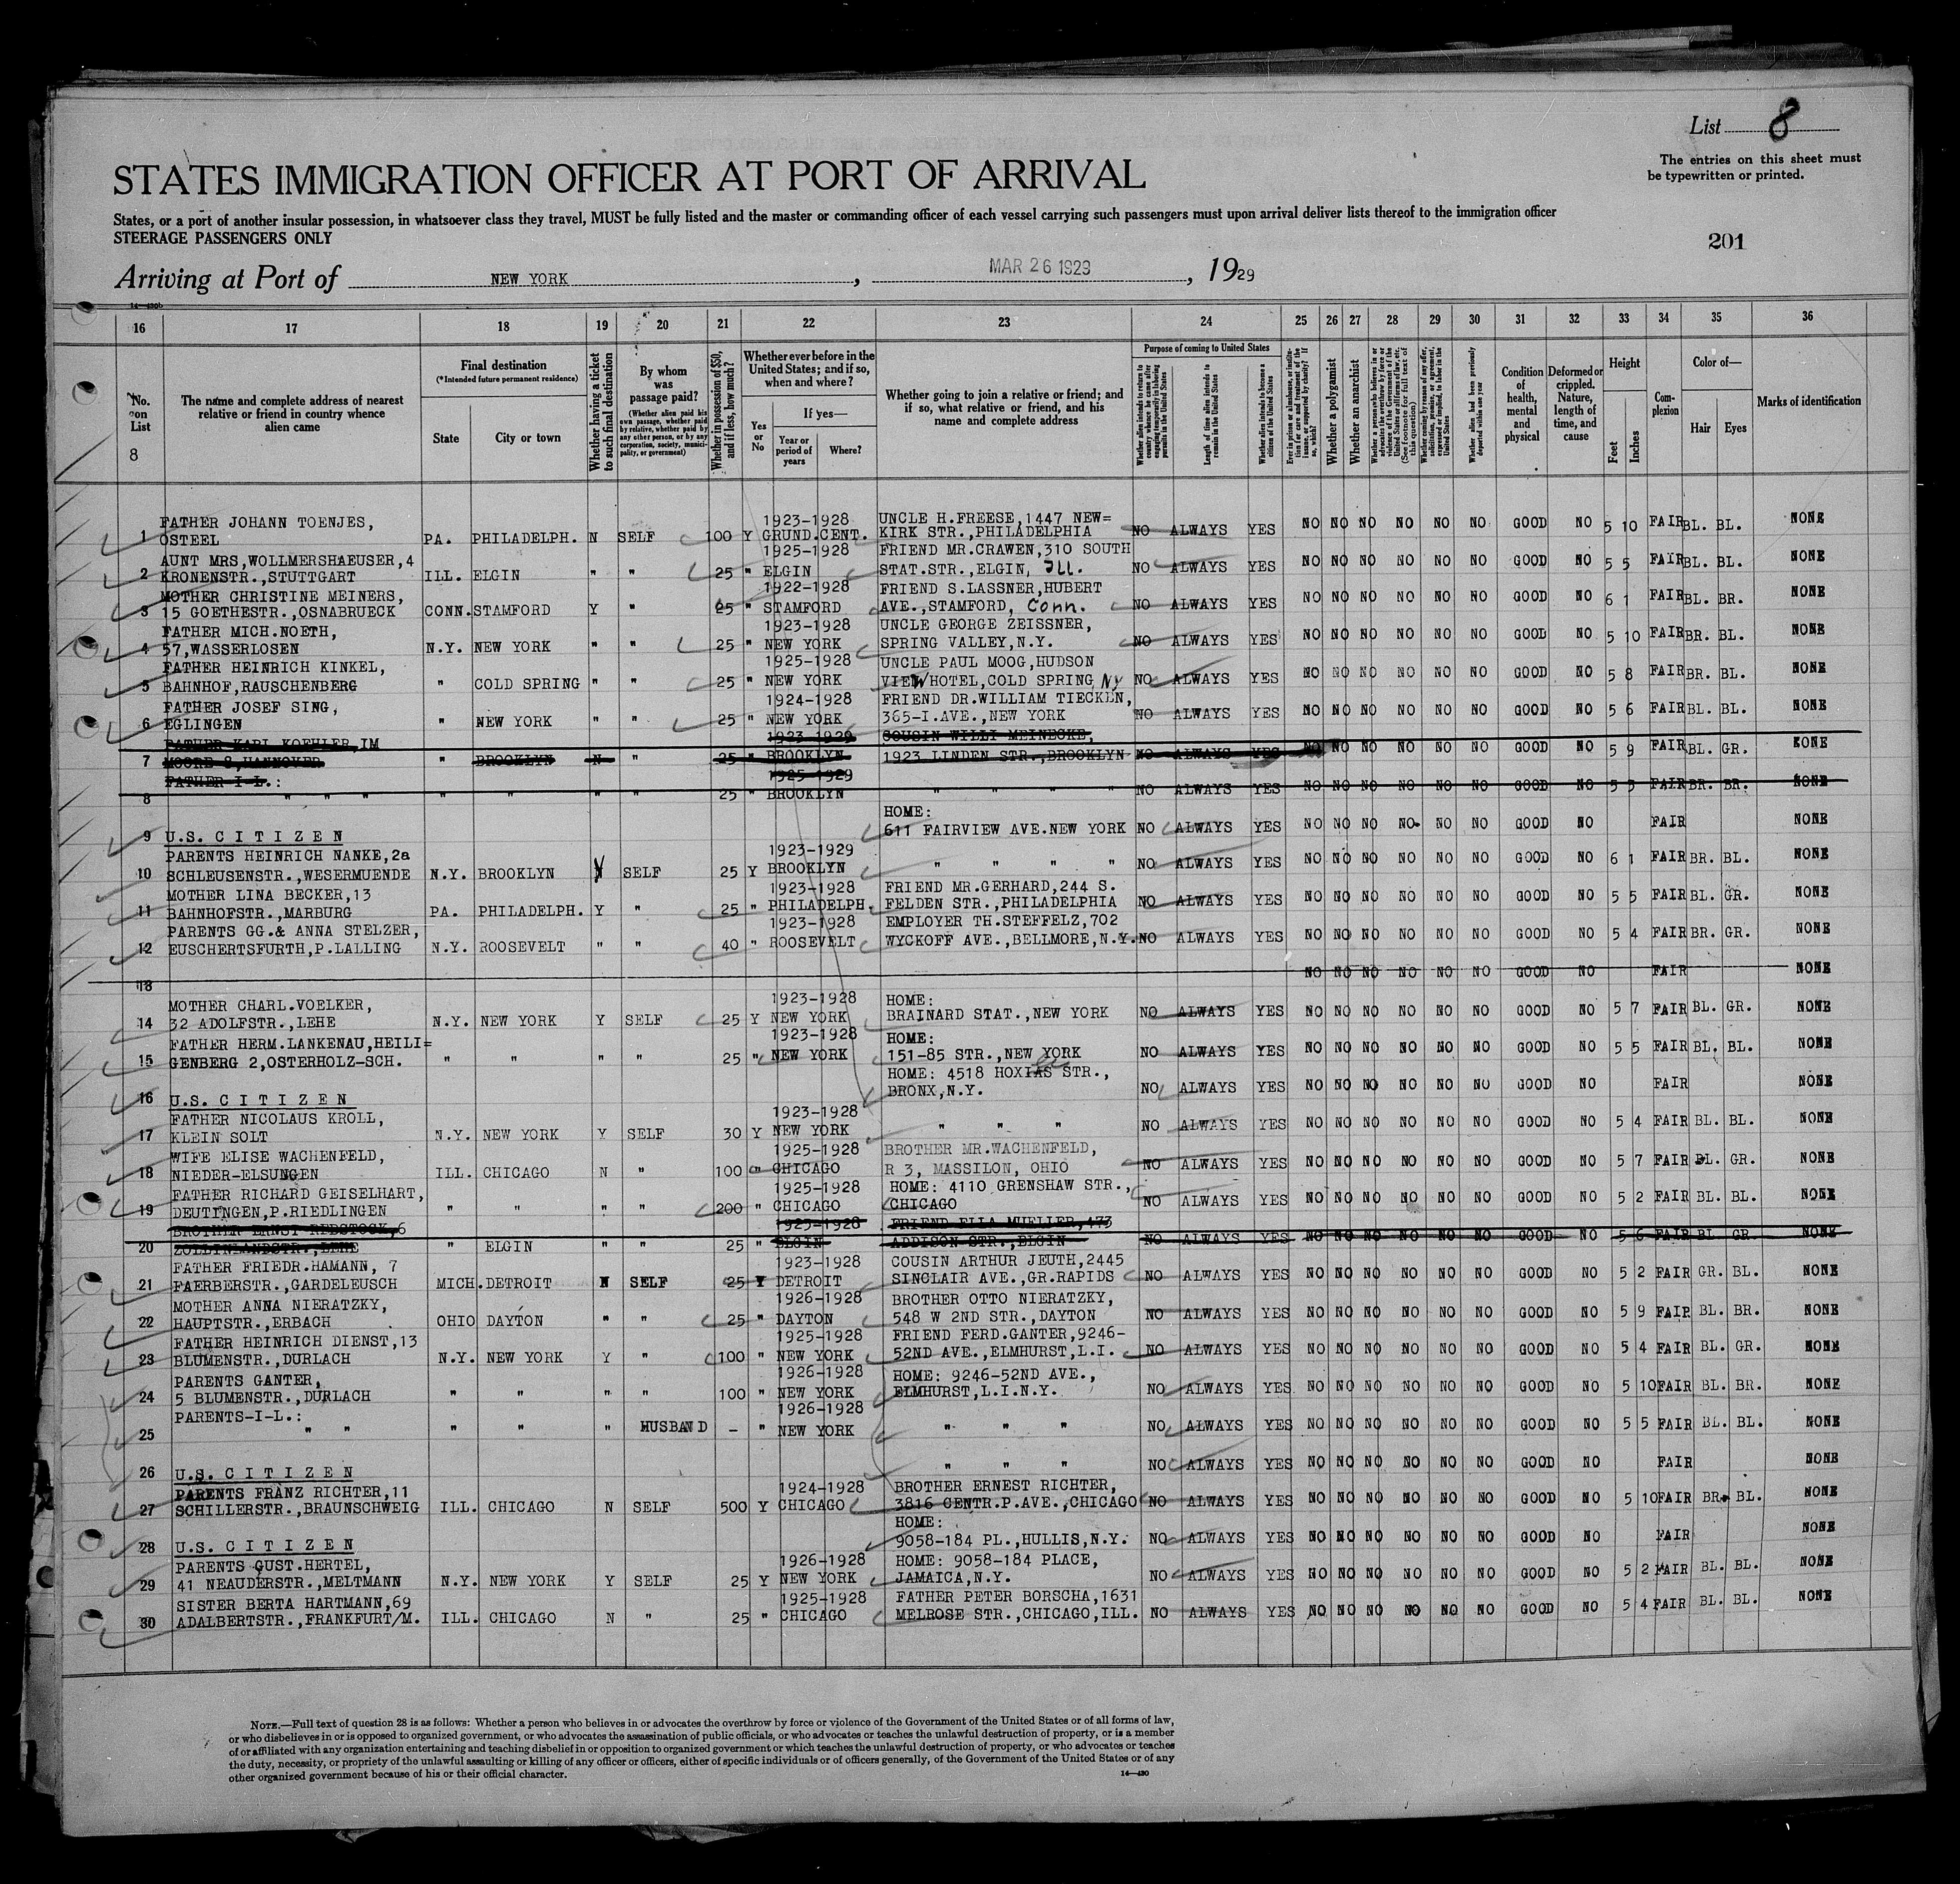 List 8
The entries on this sheet must
be typewritten or printed.
STATES IMMIGRATION OFFICER AT PORT OF ARRIVAL
States, or a port of another insular possession, in whatsoever class they travel, MUST be fully listed and the master or commanding officer of each vessel carrying such passengers must upon arrival deliver lists thereof to the immigration officer
STEERAGE PASSENGERS ONLY
201
Arriving at Port of NEW YORK, MAR 26 1929, 1929
14—430b
16 17 18 19 20 21 22 23 24 25 26 27 28 29 30 31 32 33 34 35 36
No. on List
8
The name and complete address of nearest
relative or friend in country whence
alien came
Final destination
(*Intended future permanent residence)
State
City or town
Whether having a ticket
to such final destination
By whom
was
passage paid?
(Whether alien paid his
own passage, whether paid
by relative, whether paid by
any other person, or by any
corporation, society, munici-
pality, or government)
Whether in possession of $50,
and if less, how much?
Whether ever before in the
United States; and if so,
when and where?
Yes
or
No
If yes—
Year or
period of
years
Where?
Whether going to join a relative or friend; and
if so, what relative or friend, and his
name and complete address
Purpose of coming to United States
Whether alien intends to return to
country whence he came after
engaging temporarily in laboring
pursuits in the United States
Length of time alien intends to
remain in the United States
Whether alien intends to become a
citizen of the United States
Ever in prison or almshouse, or institu-
tion for care and treatment of the
insane, or supported by charity? If
so, which?
Whether a polygamist
Whether an anarchist
Whether a person who believes in or
advocates the overthrow by force or
violence of the Government of the
United States or all forms of law, etc.
(See footnote for full text of
this question)
Whether coming by reason of any offer,
solicitation, promise, or agreement,
expressed or implied, to labor in the
United States
Whether alien had been previously
deported within one year
Condition
of
health,
mental
and
physical
Deformed or
crippled.
Nature,
length of
time, and
cause
Height
Feet
Inches
Com-
plexion
Color of—
Hair
Eyes
Marks of identification
FATHER JOHANN TOENJES, 1923-1928 UNCLE H.FREESE,1447 NEW=
1 OSTEEL PA. PHILADELPH. N SELF 100 Y GRUND.CENT. KIRK STR.,PHILADELPHIA NO ALWAYS YES NO NO NO NO NO NO GOOD NO 5 10 FAIR BL. BL. NONE
AUNT MRS,WOLLMERSHAEUSER,4 1925-1928 FRIEND MR.CRAWEN,310 SOUTH
2 KRONENSTR.,STUTTGART ILL. ELGIN " " 25 " ELGIN STAT.STR.,ELGIN, Ill. NO ALWAYS YES NO NO NO NO NO NO GOOD NO 5 5 FAIR BL. BL. NONE
MOTHER CHRISTINE MEINERS, 1922-1928 FRIEND S.LASSNER,HUBERT
3 15 GOETHESTR.,OSNABRUECK CONN. STAMFORD Y " 25 " STAMFORD AVE.,STAMFORD, Conn. NO ALWAYS YES NO NO NO NO NO NO GOOD NO 6 1 FAIR BL. BR. NONE
FATHER MICH.NOETH, 1923-1928 UNCLE GEORGE ZEISSNER,
4 57,WASSERLOSEN N.Y. NEW YORK " " 25 " NEW YORK SPRING VALLEY,N.Y. NO ALWAYS YES NO NO NO NO NO NO GOOD NO 5 10 FAIR BR. BL. NONE
FATHER HEINRICH KINKEL, 1925-1928 UNCLE PAUL MOOG,HUDSON
5 BAHNHOF,RAUSCHENBERG " COLD SPRING " " 25 " NEW YORK VIEW HOTEL,COLD SPRING NY NO ALWAYS YES NO NO NO NO NO NO GOOD NO 5 8 FAIR BR. BL. NONE
FATHER JOSEF SING, 1924-1928 FRIEND DR.WILLIAM TIECKEN,
6 EGLINGEN " NEW YORK " " 25 " NEW YORK 365-I.AVE.,NEW YORK NO ALWAYS YES NO NO NO NO NO NO GOOD NO 5 6 FAIR BL. BL. NONE
FATHER KARL KOEHLER,IM 1923-1929 COUSIN WILLI MEINECKE,
7 MOORE 8,HANNOVER " BROOKLYN N " 25 " BROOKLYN 1923 LINDEN STR.,BROOKLYN NO ALWAYS YES NO NO NO NO NO NO GOOD NO 5 9 FAIR BL. GR. NONE
FATHER-I-L.: 1925-1929
8 " " " " " " " 25 " BROOKLYN " " " " NO ALWAYS YES NO NO NO NO NO NO GOOD NO 5 5 FAIR BR. BR. NONE
HOME:
9 U.S. C I T I Z E N 611 FAIRVIEW AVE.NEW YORK NO ALWAYS YES NO NO NO NO NO NO GOOD NO FAIR NONE
PARENTS HEINRICH NANKE,2a 1923-1929
10 SCHLEUSENSTR.,WESERMUENDE N.Y. BROOKLYN Y SELF 25 Y BROOKLYN " " " " NO ALWAYS YES NO NO NO NO NO NO GOOD NO 6 1 FAIR BR. BL. NONE
MOTHER LINA BECKER,13 1923-1928 FRIEND MR.GERHARD,244 S.
11 BAHNHOFSTR.,MARBURG PA. PHILADELPH. Y " 25 " PHILADELPH. FELDEN STR.,PHILADELPHIA NO ALWAYS YES NO NO NO NO NO NO GOOD NO 5 5 FAIR BL. GR. NONE
PARENTS GG.& ANNA STELZER, 1923-1928 EMPLOYER TH.STEFFELZ,702
12 EUSCHERTSFURTH,P.LALLING N.Y. ROOSEVELT " " 40 " ROOSEVELT WYCKOFF AVE.,BELLMORE,N.Y. NO ALWAYS YES NO NO NO NO NO NO GOOD NO 5 4 FAIR BR. GR. NONE
13 NO NO NO NO NO NO GOOD NO FAIR NONE
MOTHER CHARL.VOELKER, 1923-1928 HOME:
14 32 ADOLFSTR.,LEHE N.Y. NEW YORK Y SELF 25 Y NEW YORK BRAINARD STAT.,NEW YORK NO ALWAYS YES NO NO NO NO NO NO GOOD NO 5 7 FAIR BL. GR. NONE
FATHER HERM.LANKENAU,HEILI= 1923-1928 HOME:
15 GENBERG 2,OSTERHOLZ-SCH. " " " " 25 " NEW YORK 151-85 STR.,NEW YORK NO ALWAYS YES NO NO NO NO NO NO GOOD NO 5 5 FAIR BL. BL. NONE
HOME: 4518 HOXIAS STR.,
16 U.S. C I T I Z E N BRONX,N.Y. NO ALWAYS YES NO NO NO NO NO NO GOOD NO FAIR NONE
FATHER NICOLAUS KROLL, 1923-1928
17 KLEIN SOLT N.Y. NEW YORK Y SELF 30 Y NEW YORK " " " NO ALWAYS YES NO NO NO NO NO NO GOOD NO 5 4 FAIR BL. BL. NONE
WIFE ELISE WACHENFELD, 1925-1928 BROTHER MR.WACHENFELD,
18 NIEDER-ELSUNGEN ILL. CHICAGO N " 100 " CHICAGO R 3, MASSILON, OHIO NO ALWAYS YES NO NO NO NO NO NO GOOD NO 5 7 FAIR BL. GR. NONE
FATHER RICHARD GEISELHART, 1925-1928 HOME: 4110 GRENSHAW STR.,
19 DEUTINGEN,P.RIEDLINGEN " " " " 200 " CHICAGO CHICAGO NO ALWAYS YES NO NO NO NO NO NO GOOD NO 5 2 FAIR BL. BL. NONE
BROTHER ERNST REDSTOCK,6 1925-1928 FRIEND ELLA MUELLER,473
20 ZOLLINLANDSTR.,LEHE " ELGIN " " 25 " ELGIN ADDISON STR.,ELGIN NO ALWAYS YES NO NO NO NO NO NO GOOD NO 5 6 FAIR BL GR. NONE
FATHER FRIEDR.HAMANN, 7 1923-1928 COUSIN ARTHUR JEUTH,2445
21 FAERBERSTR.,GARDELEUSCH MICH. DETROIT N SELF 25 Y DETROIT SINCLAIR AVE.,GR.RAPIDS NO ALWAYS YES NO NO NO NO NO NO GOOD NO 5 2 FAIR GR. BL. NONE
MOTHER ANNA NIERATZKY, 1926-1928 BROTHER OTTO NIERATZKY,
22 HAUPTSTR.,ERBACH OHIO DAYTON " " 25 " DAYTON 548 W 2ND STR.,DAYTON NO ALWAYS YES NO NO NO NO NO NO GOOD NO 5 9 FAIR BL. BR. NONE
FATHER HEINRICH DIENST,13 1925-1928 FRIEND FERD.GANTER,9246-
23 BLUMENSTR.,DURLACH N.Y. NEW YORK Y " 100 " NEW YORK 52ND AVE.,ELMHURST,L.I. NO ALWAYS YES NO NO NO NO NO NO GOOD NO 5 4 FAIR BL. GR. NONE
PARENTS GANTER, 1926-1928 HOME: 9246-52ND AVE.,
24 5 BLUMENSTR.,DURLACH " " " " 100 " NEW YORK ELMHURST,L.I.N.Y. NO ALWAYS YES NO NO NO NO NO NO GOOD NO 5 10 FAIR BL. BR. NONE
PARENTS-I-L.: 1926-1928
25 " " " " " HUSBAND - " NEW YORK " " " NO ALWAYS YES NO NO NO NO NO NO GOOD NO 5 5 FAIR BL. BL. NONE
26 U.S. C I T I Z E N " " " NO ALWAYS YES NO NO NO NO NO NO GOOD NO FAIR NONE
PARENTS FRANZ RICHTER,11 1924-1928 BROTHER ERNEST RICHTER,
27 SCHILLERSTR.,BRAUNSCHWEIG ILL. CHICAGO N SELF 500 Y CHICAGO 3816 CENTR.P.AVE.,CHICAGO NO ALWAYS YES NO NO NO NO NO NO GOOD NO 5 10 FAIR BR. BL. NONE
HOME:
28 U.S. C I T I Z E N 9058-184 PL.,HULLIS,N.Y. NO ALWAYS YES NO NO NO NO NO NO GOOD NO FAIR NONE
PARENTS GUST.HERTEL, 1926-1928 HOME: 9058-184 PLACE,
29 41 NEAUDERSTR.,MELTMANN N.Y. NEW YORK Y SELF 25 Y NEW YORK JAMAICA,N.Y. NO ALWAYS YES NO NO NO NO NO NO GOOD NO 5 2 FAIR BL. BL. NONE
SISTER BERTA HARTMANN,69 1925-1928 FATHER PETER BORSCHA,1631
30 ADALBERTSTR.,FRANKFURT/M. ILL. CHICAGO N " 25 " CHICAGO MELROSE STR.,CHICAGO,ILL. NO ALWAYS YES NO NO NO NO NO NO GOOD NO 5 4 FAIR BL. BL. NONE
NOTE.—Full text of question 28 is as follows: Whether a person who believes in or advocates the overthrow by force or violence of the Government of the United States or of all forms of law,
or who disbelieves in or is opposed to organized government, or who advocates the assassination of public officials, or who advocates or teaches the unlawful destruction of property, or is a member
of or affiliated with any organization entertaining and teaching disbelief in or opposition to organized government or which teaches the unlawful destruction of property, or who advocates or teaches
the duty, necessity, or propriety of the unlawful assaulting or killing of any officer or officers, either of specific individuals or of officers generally, of the Government of the United States or of any
other organized government because of his or their official character.
14—430